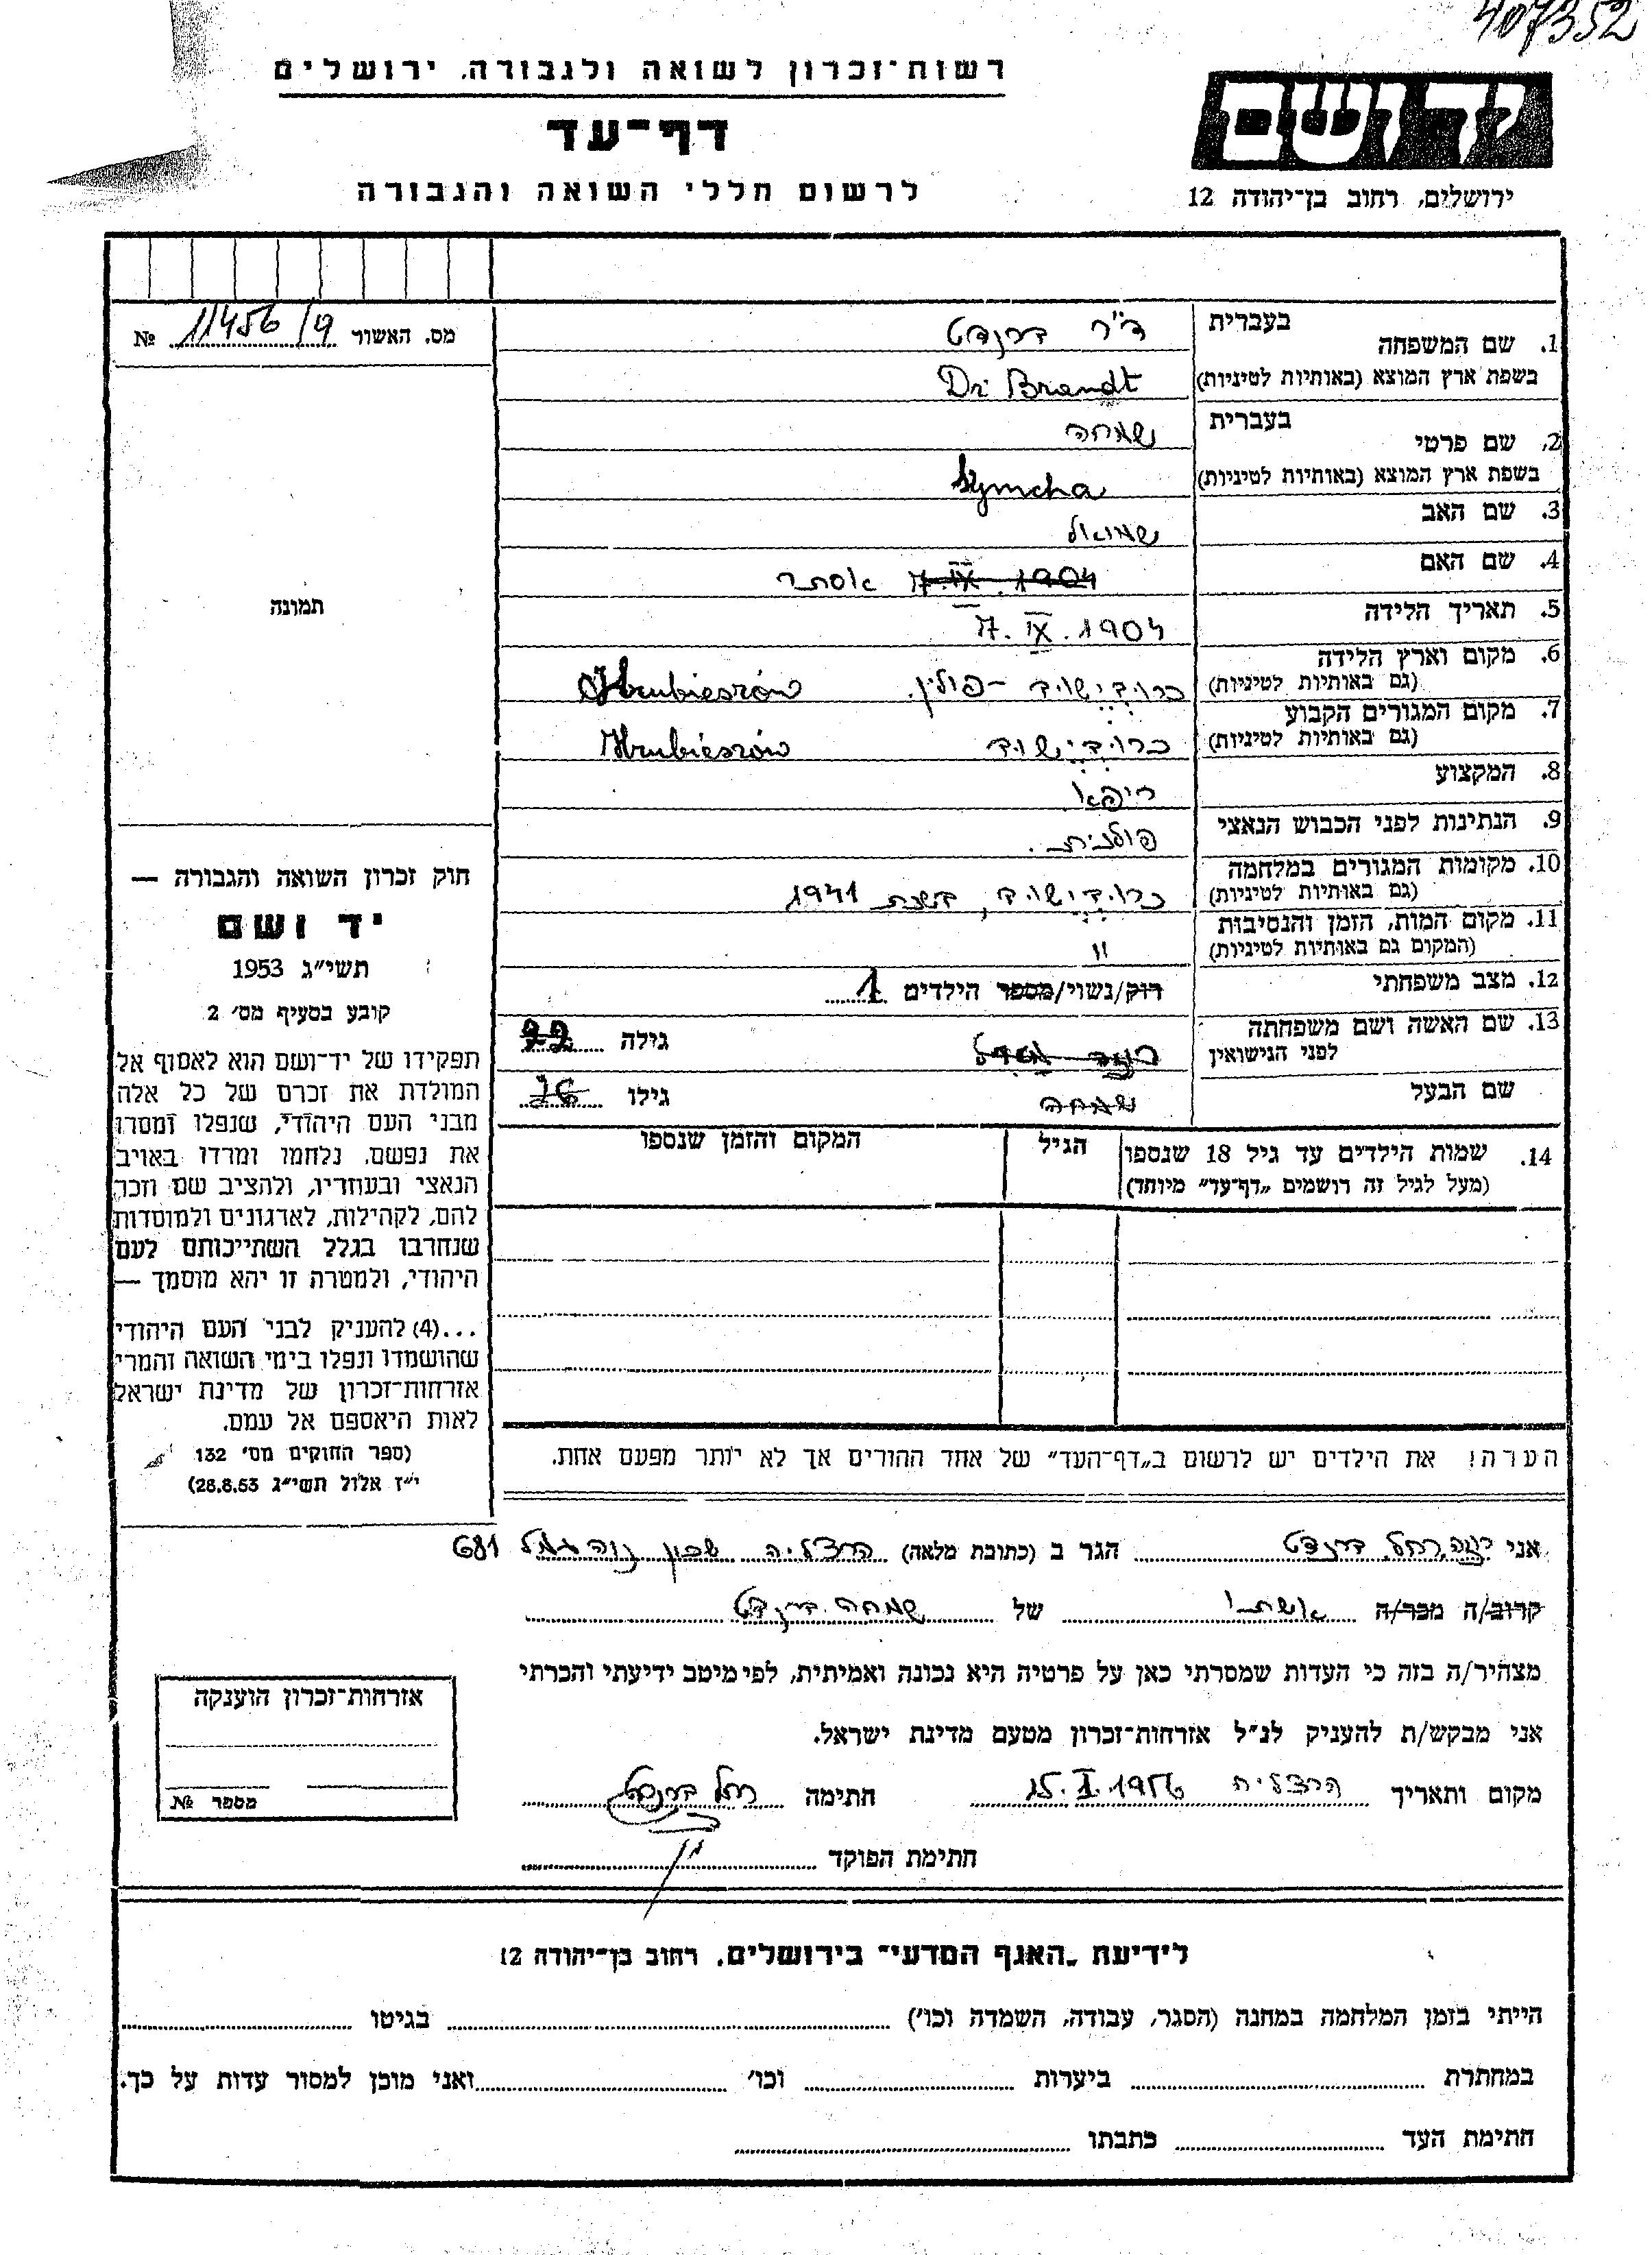 407352
רשות־זכרון לשואה ולגבורה. ירושלים
דף־עד
לרשום חללי השואה והגבורה
יד ושם
ירושלים, רחוב בן־יהודה 12
מס. האשור 11456/9 №
תמונה
חוק זכרון השואה והגבורה —
יד ושם
תשי״ג 1953
קובע בסעיף מס׳ 2
תפקידו של יד־ושם הוא לאסוף אל
המולדת את זכרם של כל אלה
מבני העם היהודי, שנפלו ומסרו
את נפשם, נלחמו ומרדו באויב
הנאצי ובעוזריו, ולהציב שם וזכר
להם, לקהילות, לארגונים ולמוסדות
שנחרבו בגלל השתייכותם לעם
היהודי, ולמטרה זו יהא מוסמך —
...(4) להעניק לבני העם היהודי
שהושמדו ונפלו בימי השואה והמרי
אזרחות־זכרון של מדינת ישראל
לאות היאספם אל עמם.
(ספר החוקים מס׳ 132
י״ז אלול תשי״ג 28.8.53)
1. שם המשפחה בעברית ד״ר ברנדט
בשפת ארץ המוצא (באותיות לטיניות) Dr Brandt
2. שם פרטי בעברית שמחה
בשפת ארץ המוצא (באותיות לטיניות) Symcha
3. שם האב שמואל
4. שם האם 7.IX.1904 אסתר
5. תאריך הלידה 7.IX.1904
6. מקום וארץ הלידה (גם באותיות לטיניות) הרוביישוב – פולין. Hrubieszów
7. מקום המגורים הקבוע (גם באותיות לטיניות) הרוביישוב Hrubieszów
8. המקצוע רופא
9. הנתינות לפני הכבוש הנאצי פולנית.
10. מקומות המגורים במלחמה (גם באותיות לטיניות) הרוביישוב, בשנת 1941
11. מקום המות, הזמן והנסיבות (המקום גם באותיות לטיניות) "
12. מצב משפחתי רוק/נשוי/מספר הילדים 1
13. שם האשה ושם משפחתה לפני הנישואין גילה
שם הבעל שמחה גילו
14. שמות הילדים עד גיל 18 שנספו (מעל לגיל זה רושמים „דף־עד״ מיוחד) הגיל המקום והזמן שנספו
הערה! את הילדים יש לרשום ב„דף־העד״ של אחד ההורים אך לא יותר מפעם אחת.
אני רחל ברנדט הגר ב (כתובת מלאה) הרצליה שכון נוה עמל 681
קרוב/ה מכר/ה אשתו של שמחה ברנדט
מצהיר/ה בזה כי העדות שמסרתי כאן על פרטיה היא נכונה ואמיתית, לפי מיטב ידיעתי והכרתי
אני מבקש/ת להעניק לנ״ל אזרחות־זכרון מטעם מדינת ישראל.
מקום ותאריך הרצליה 15.I.1956 חתימה רחל ברנדט
חתימת הפוקד
אזרחות־זכרון הוענקה
מספר №
לידיעת „האגף המדעי״ בירושלים. רחוב בן־יהודה 12
הייתי בזמן המלחמה במחנה (הסגר, עבודה, השמדה וכו׳) בגיטו
במחתרת ביערות וכו׳ ואני מוכן למסור עדות על כך.
חתימת העד כתבתו